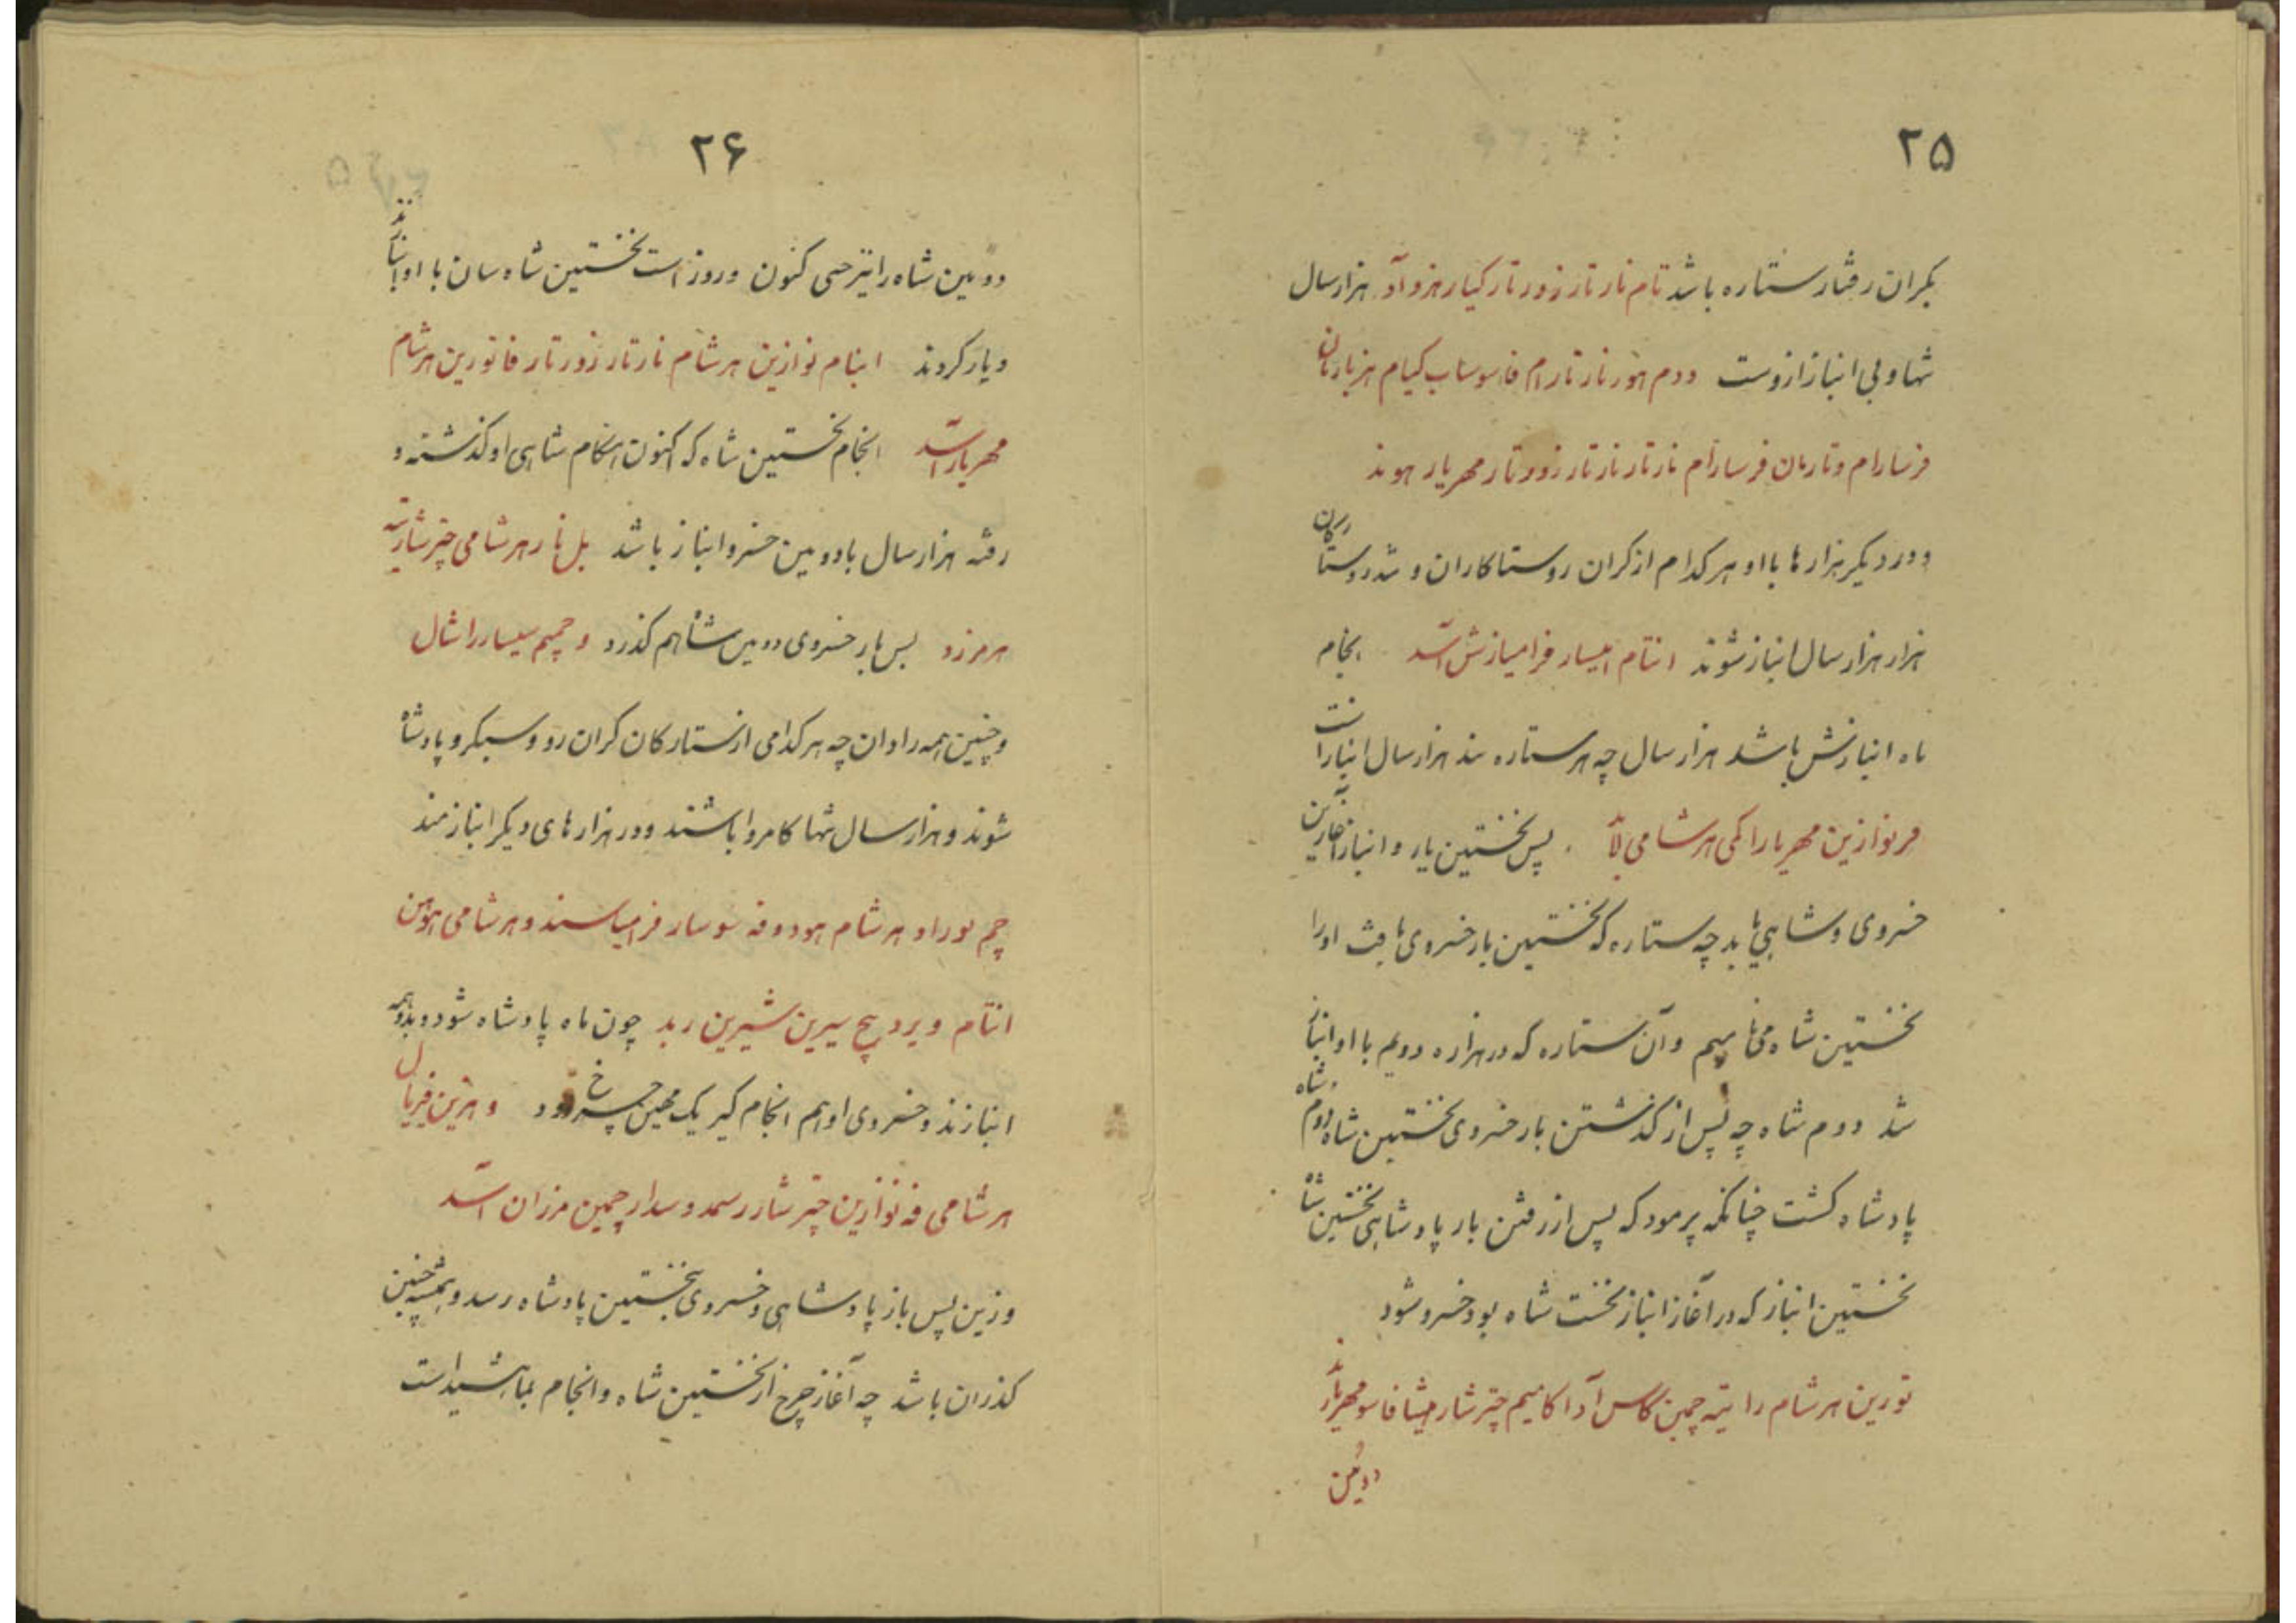 ۲۵
بکران رفتار ستاره باشد تام نار تار زور تار کیار هزو آد هزار سال
تنها و بی انباز ازوست ددم هور ناز تارام فاسو ساب کیام هزبارتان
فرسارام و تارمان فرسارام ناز تار ناز تار زوو تار مهریار هوند
و در دیگر هزارها با او هر کدام از کران روستاکاران و تند روستارکان
هزار هزار سال انباز شوند انتام امیسار فرامیازش اشد انجام
ماه انبازش باشد هزار سال چه هر ستاره تند هزار سال انباز است
فر نوازین مهریار را کمی هر شامی لاد پس نخستین یار و انباز آغازین
خسروی و شاهی یابد چه ستاره که نخستین بار خسروی یافت او را
نخستین شاه می نامیم و آن ستاره که در هزاره دویم با او انباز
شد دوم شاه چه پس از گذشتن بار خسروی نخستین شاه دوم شاه
پادشاه گشت چنانکه پرمود که پس از رفتن بار پادشاهی نخستین شاه
نخستین انباز که در آغاز انباز نخست شاه بود خسرو شود
تورین هرشام را تیه چمین کاس آد اکامیم چتر شار میشا فاسو مهریارند
دومین
۲۶
دومین شاه را نیز حی کنون و روز است نخستین شاه سان با او انبازند
و یار گروند اینام نوازین هرشام نارتار زورتار فاتورین هرشام
مهریار اشد انجام نخستین شاه که اکنون هنگام شاهی او گذشته و
رفته هزار سال با دومین خسرو انباز باشد بل نار هرشامی چتر شار تیه
هرمزد پس بار خسروی دومین شاه هم گذرد و چمیم سیسار راشال
و چنین همه را دان چه هر کدامی از ستارگان گران رو و سبکرو پادشاه
شوند و هزار سال تنها کامروا باشند و در هزارهای دیگر انبازمند
چم بور او هرشام هود و فه سوسار فرامیاسند و هرشامی هوهن
انتام ویرد هیچ سیرین شیرین ربد چون ماه پادشاه شود و بدو همه
انبازند و خسروی او هم انجام گیر یک مهین چرخ رود و هزین فریال
هرشامی فه نوازین چتر شار رسمد و سدار چمین مرزان اشد
و زین پس باز پادشاهی و خسروی نخستین پادشاه رسد و همیشه چنین
گذران باشد چه آغاز چرخ از نخستین شاه و انجام بماه شید است